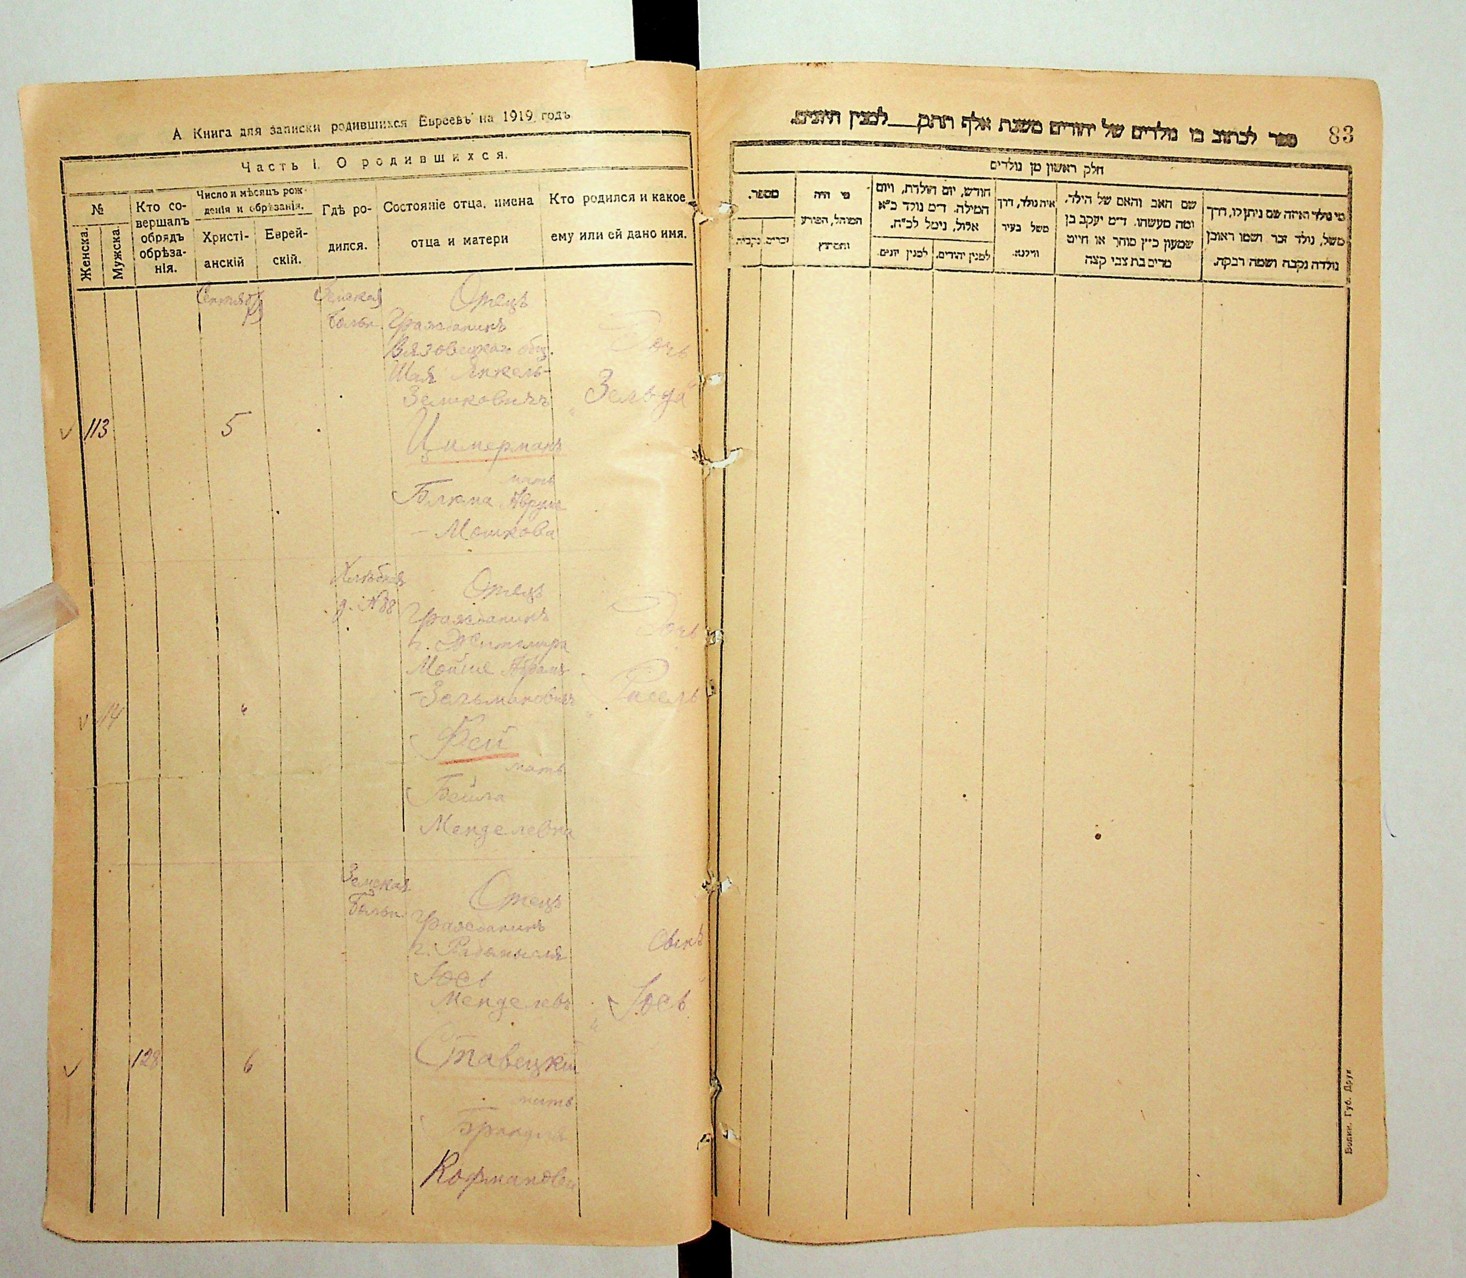 А. Книга для записки родившихся Евреевъ на 1919 годъ
Часть I. О родившихся.
№
Женска.
Мужска.
Кто со-
вершалъ
обрядъ
обрѣза-
нія.
Число и мѣсяцъ рож-
денія и обрѣзанія.
Христі-
анскій
Еврей-
скій.
Гдѣ ро-
дился.
Состояніе отца, имена
отца и матери
Кто родился и какое
ему или ей дано имя.
113
5
Отецъ
Гражданинъ
Шая Янкель-
Зеликовичъ
Цимерманъ
мать
Мошкова
Дочь
"Зельда"
114
"
д. №88
Отецъ
Гражданинъ
г. Житомира
Мойше Абрамъ
Фей
мать
Бейла
Менделевна
Дочь
128
6
Земская
Больн.
Отецъ
Гражданинъ
г. Радомысля
Іось
Менделевъ
Ставецкій
мать
Сынъ
"Іось"
83
ספר לכתוב בו נולדים של יהודים משנת אלף תתק___למנין היונים.
חלק ראשון מן נולדים
מספר.
זכרים.
נקבית
מי היה
המוהל, הפורע
והמוצץ
חודש, יום הולדת, ויום
המילה. ד״מ נולד כ״א
אלול, נימל לכ״ח.
למנין יונים.
למנין יהודים.
איה נולד, דרך
משל בעיר
ווילנא.
שם האב והאם של הילד,
ומה מעשהו. ד״מ יעקב בן
שמעון כ״ץ סוחר או חייט
מרים בת צבי קצה
מי נולד ואיזה שם ניתן לו, דרך
משל, נולד זכר ושמו ראובן
נולדה נקבה ושמה רבקה.
Волын. Губ. Друк.